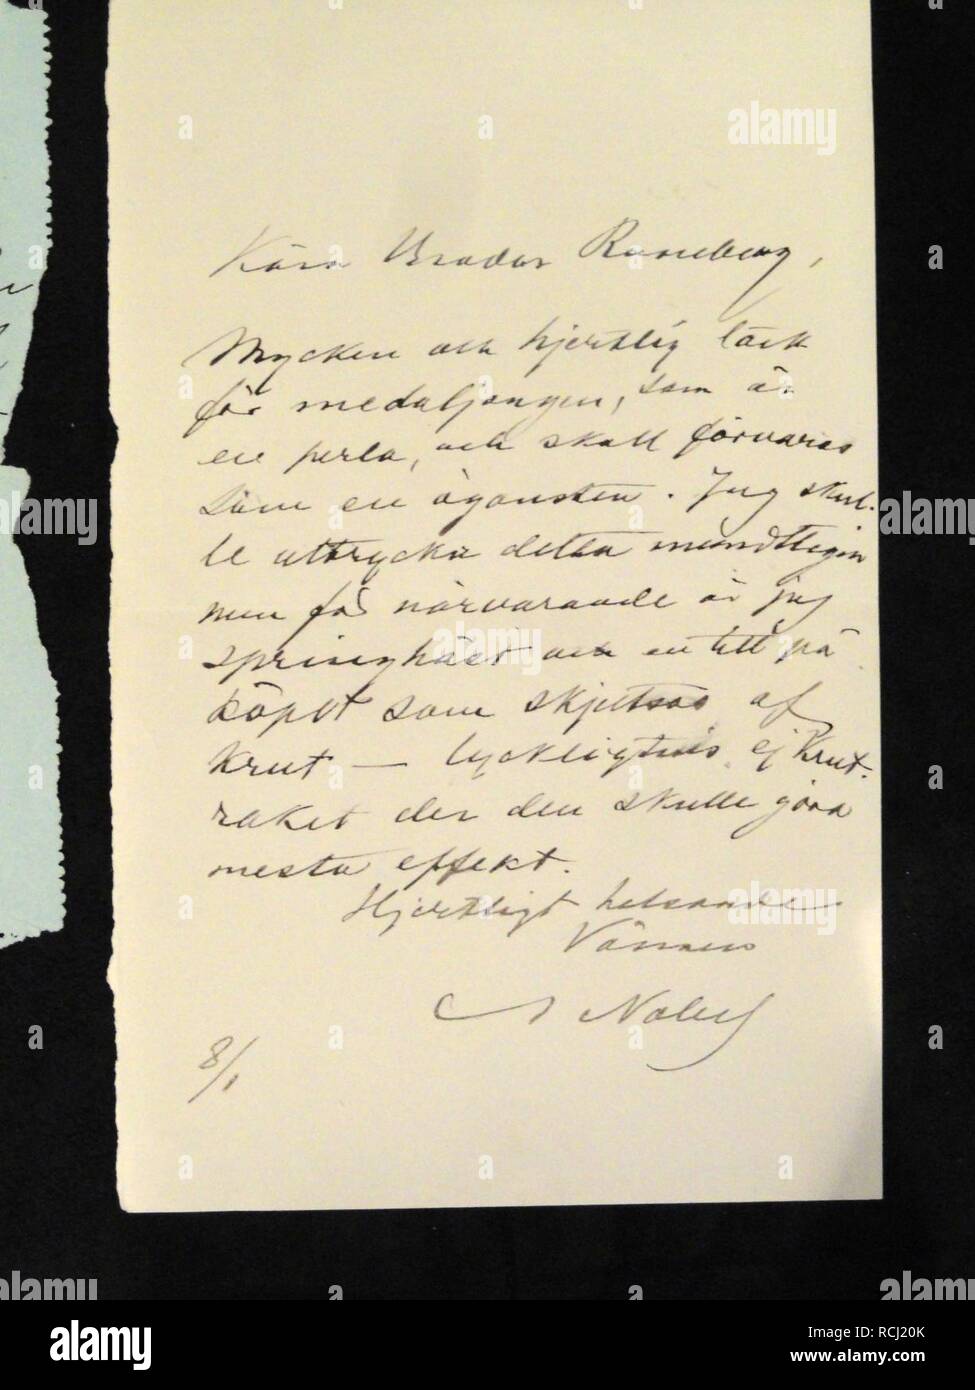 Kära Broder Runeberg,
Mycken och hjertlig tack
för medaljongen, som är
en perla, och skall förvaras
som en ögonsten. Jag skul-
le uttrycka detta mundtligen
men för närvarande är jag
springhäst och en till på
köpet som skjutsas af
Krut — lyckligtvis ej Krut-
raket der den skulle göra
mesta effekt.
Hjertligt helsande
Vännen
A Nobel
8/1
alamy
Image ID: RCJ20K
www.alamy.com